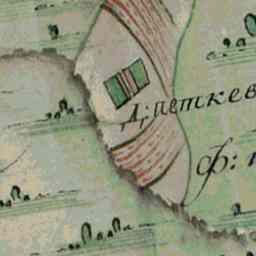 Д: петкев
Ф: